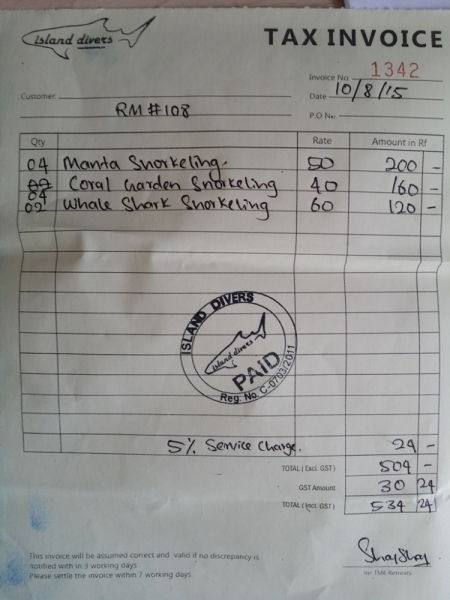 island divers
TAX INVOICE
Invoice No. 1342
Customer: Date 10/8/15
RM #108 P.O No:
Qty Rate Amount in Rf
04 Manta Snorkeling. 50 200 -
04 Coral Garden Snorkeling 40 160 -
02 Whale Shark Snorkeling 60 120 -
ISLAND DIVERS
island divers
PAID
Reg. No. C-0703/2011
5% Service Charge. 24 -
TOTAL (Excl. GST) 504 -
GST Amount 30 24
TOTAL (Incl. GST) 534 24
This invoice will be assumed correct and valid if no discrepancy is
notified with in 3 working days
Please settle the invoice within 7 working days.
for TME Retreats